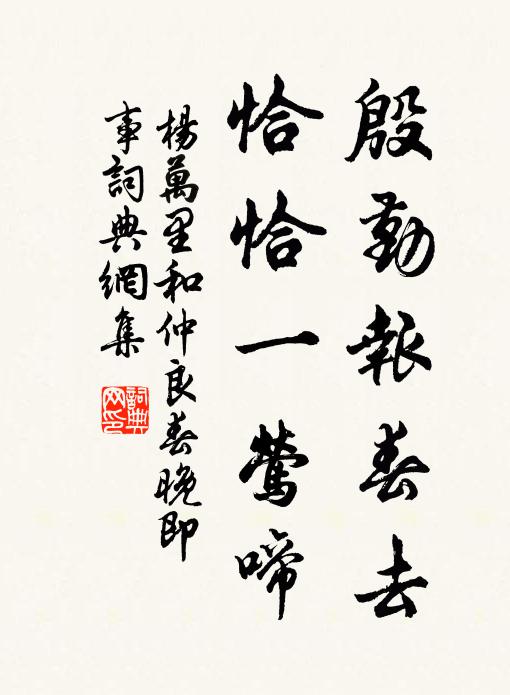 殷勤報春去
恰恰一鶯啼
楊萬里和仲良春晚即
事詞典網集
詞典
网印